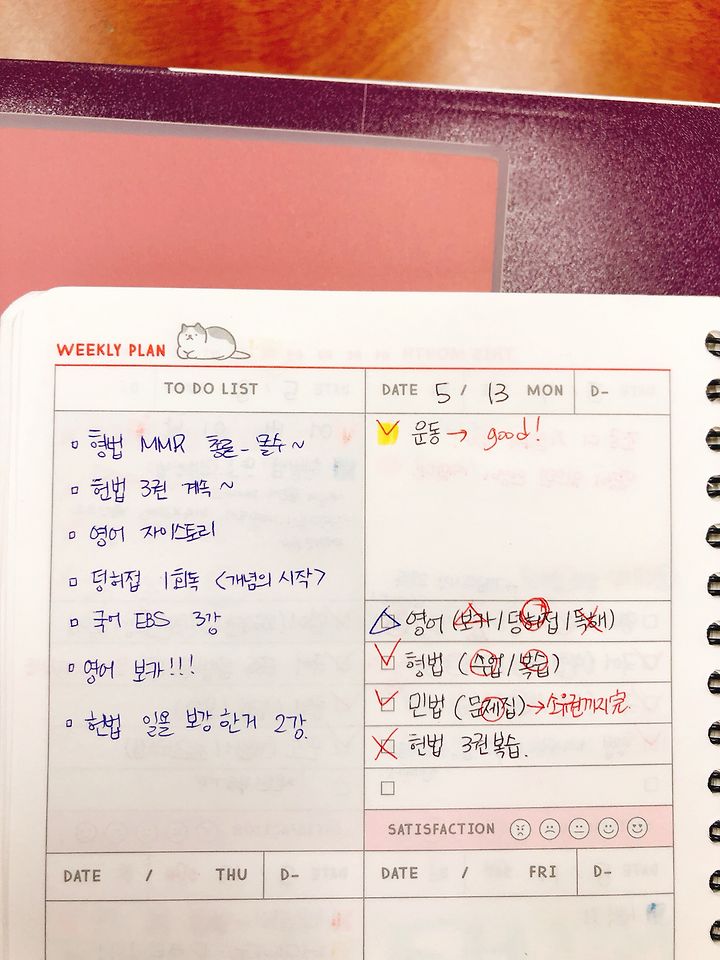 WEEKLY PLAN
TO DO LIST
형법 MMR 총론_몰수~
헌법 3권 계속~
영어 자이스토리
덩허접 1회독 <개념의 시작>
국어 EBS 3강
영어 보카!!!
헌법 일욜 보강 한거 2강.
DATE 5 / 13 MON D-
운동 → good!
영어 (보카/덩허접/독해)
형법 (수업/복습)
민법 (문제집) → 소유권까지 完
헌법 3권 복습.
SATISFACTION
DATE / THU D-
DATE / FRI D-